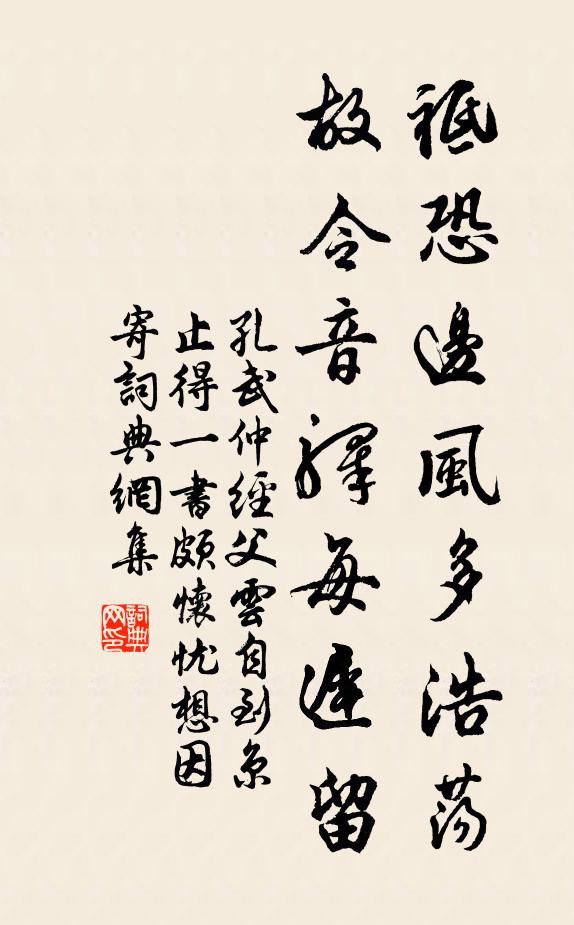 祗恐邊風多浩蕩
故令音驛每遲留
孔武仲經父雲自到京
止得一書頗懷忧想因
寄詞典網集
詞典网印